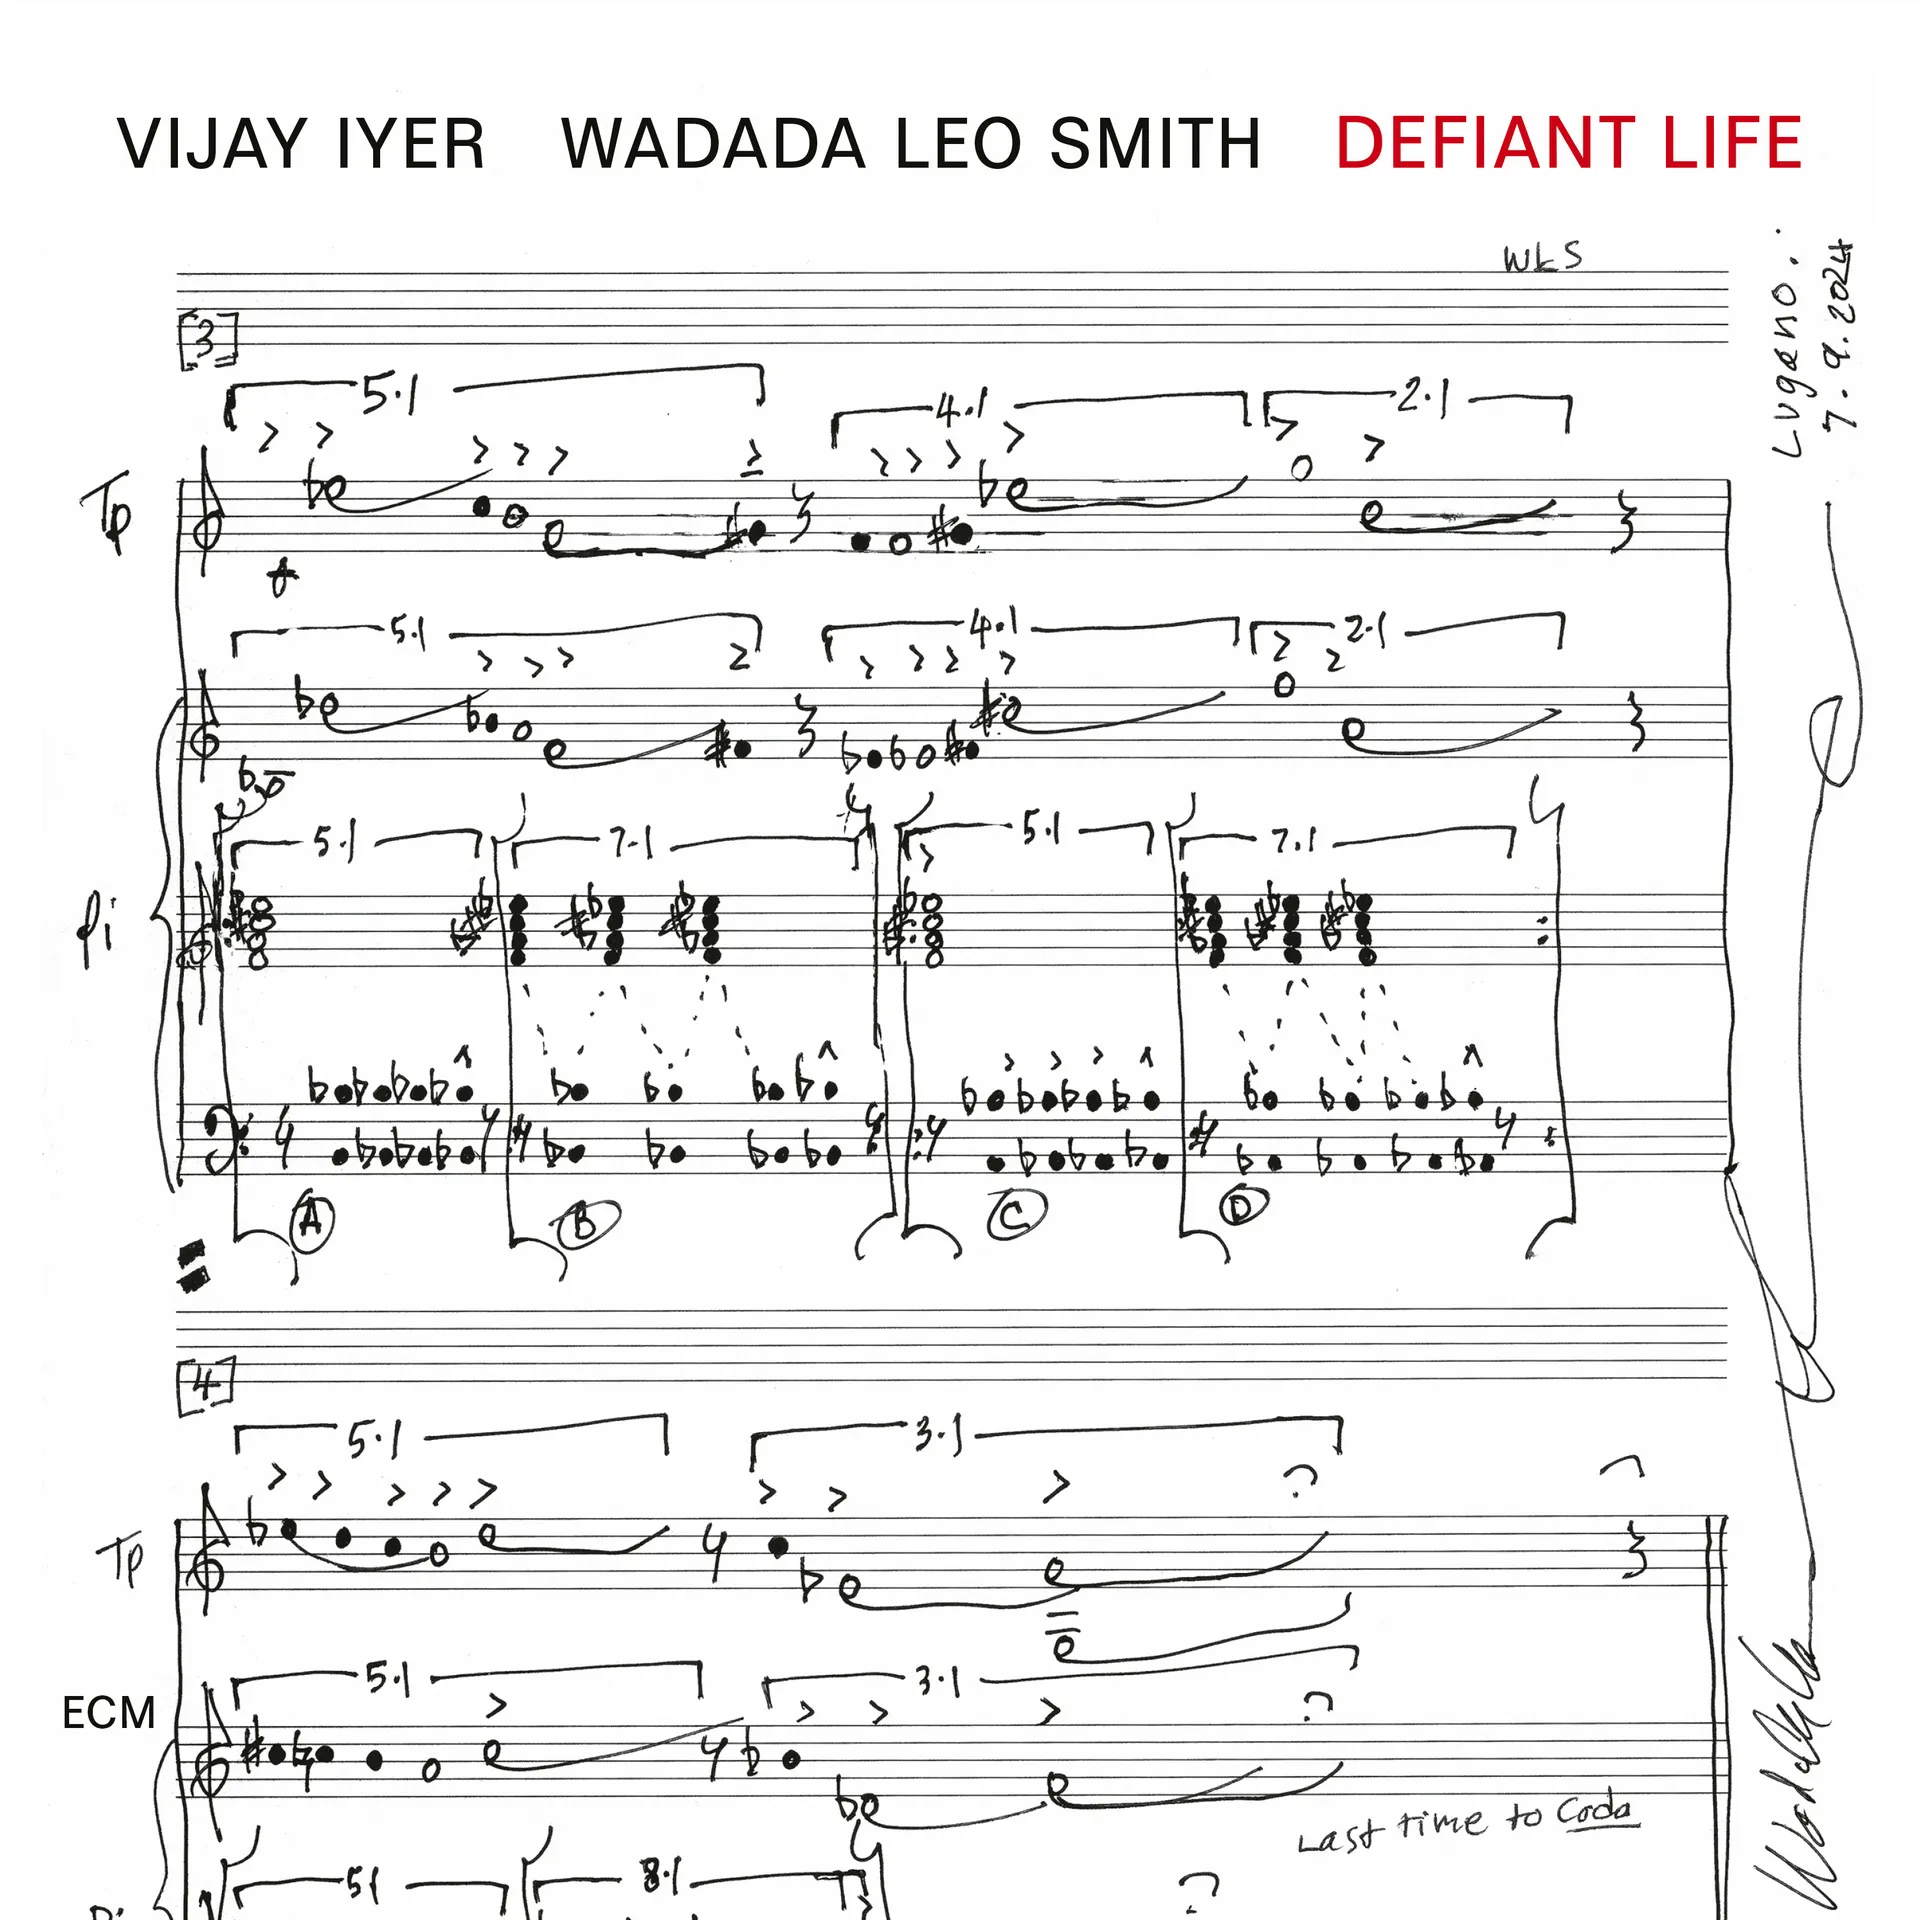 VIJAY IYER WADADA LEO SMITH DEFIANT LIFE
WLS
Lugano.
7.9.2024
[3]
5.1 4.1 2.1
Tp
5.1 4.1 2.1
5.1 7.1 5.1 7.1
Pi
A B C D
[4]
5.1 3.1
Tp
5.1 3.1
ECM
Last time to Coda
51 8.1
Pi